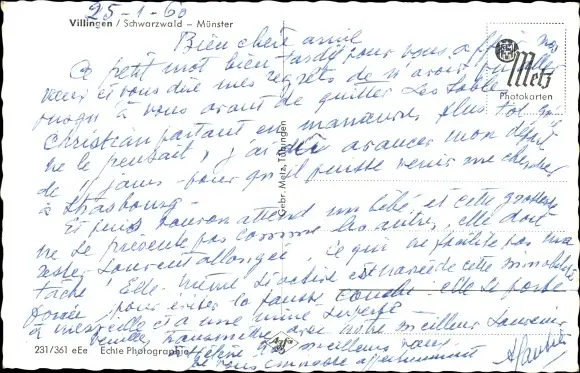 25-1-60
Villingen / Schwarzwald – Münster
Bien chère amie
Ce petit mot bien tardif pour vous offrir mes
vœux et vous dire mes regrets de n'avoir pu aller
à vous avant de quitter les Sables
Christian partant en manœuvres plus tôt
ne le pensait, j'ai dû avancer mon départ
de jours pour qu'il puisse venir me chercher
à Strasbourg
Et puis attend un bébé et cette grossesse
ne se présente pas comme les autres, elle doit
rester souvent allongée, ce qui ne facilite pas ma
tâche ! Elle même si active est navrée de cette
forcée pour éviter la fausse couche elle se porte
à merveille et a une mine superbe
Veuillez transmettre avec notre meilleur souvenir
Hélène meilleurs vœux
et vous affectueusement
Metz
Photokarten
Gebr. Metz, Tübingen
231/361 eEe Echte Photographie
Agfa